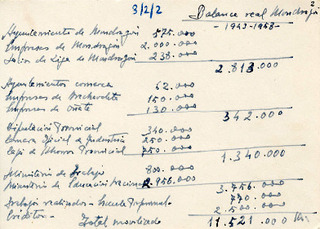 3/2/2
2
Balance real Mondragón
-1943-1958-
Ayuntamiento de Mondragón 575.000
Empresas de Mondragón 2.000.000
Salón de Liga de Mondragón 238.000
2.813.000
Ayuntamientos comarca 62.000
Empresas de 150.000
Empresas de Oñate 130.000
342.000
Diputación Provincial 340.000
Cámara Oficial de Industria 250.000
Caja de Ahorros Provincial 750.000
1.340.000
Ministerio de Trabajo 800.000
Ministerio de Educación Nacional 2.956.000
3.756.000
Trabajos realizados - Escuela Profesional 770.000
Créditos - 2.500.000
Total movilizado 11.521.000